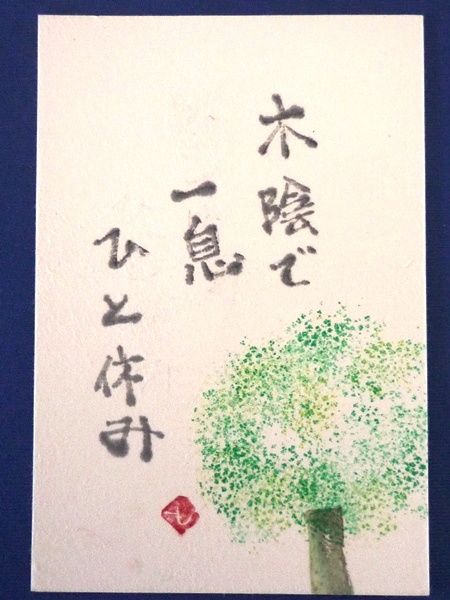 木陰で
一息
ひと休み